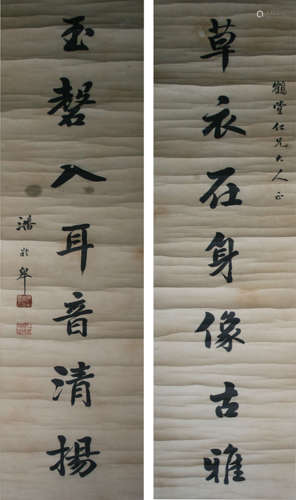 草衣在身像古雅
鶴堂仁兄大人正
玉磬入耳音清揚
潘齡皋